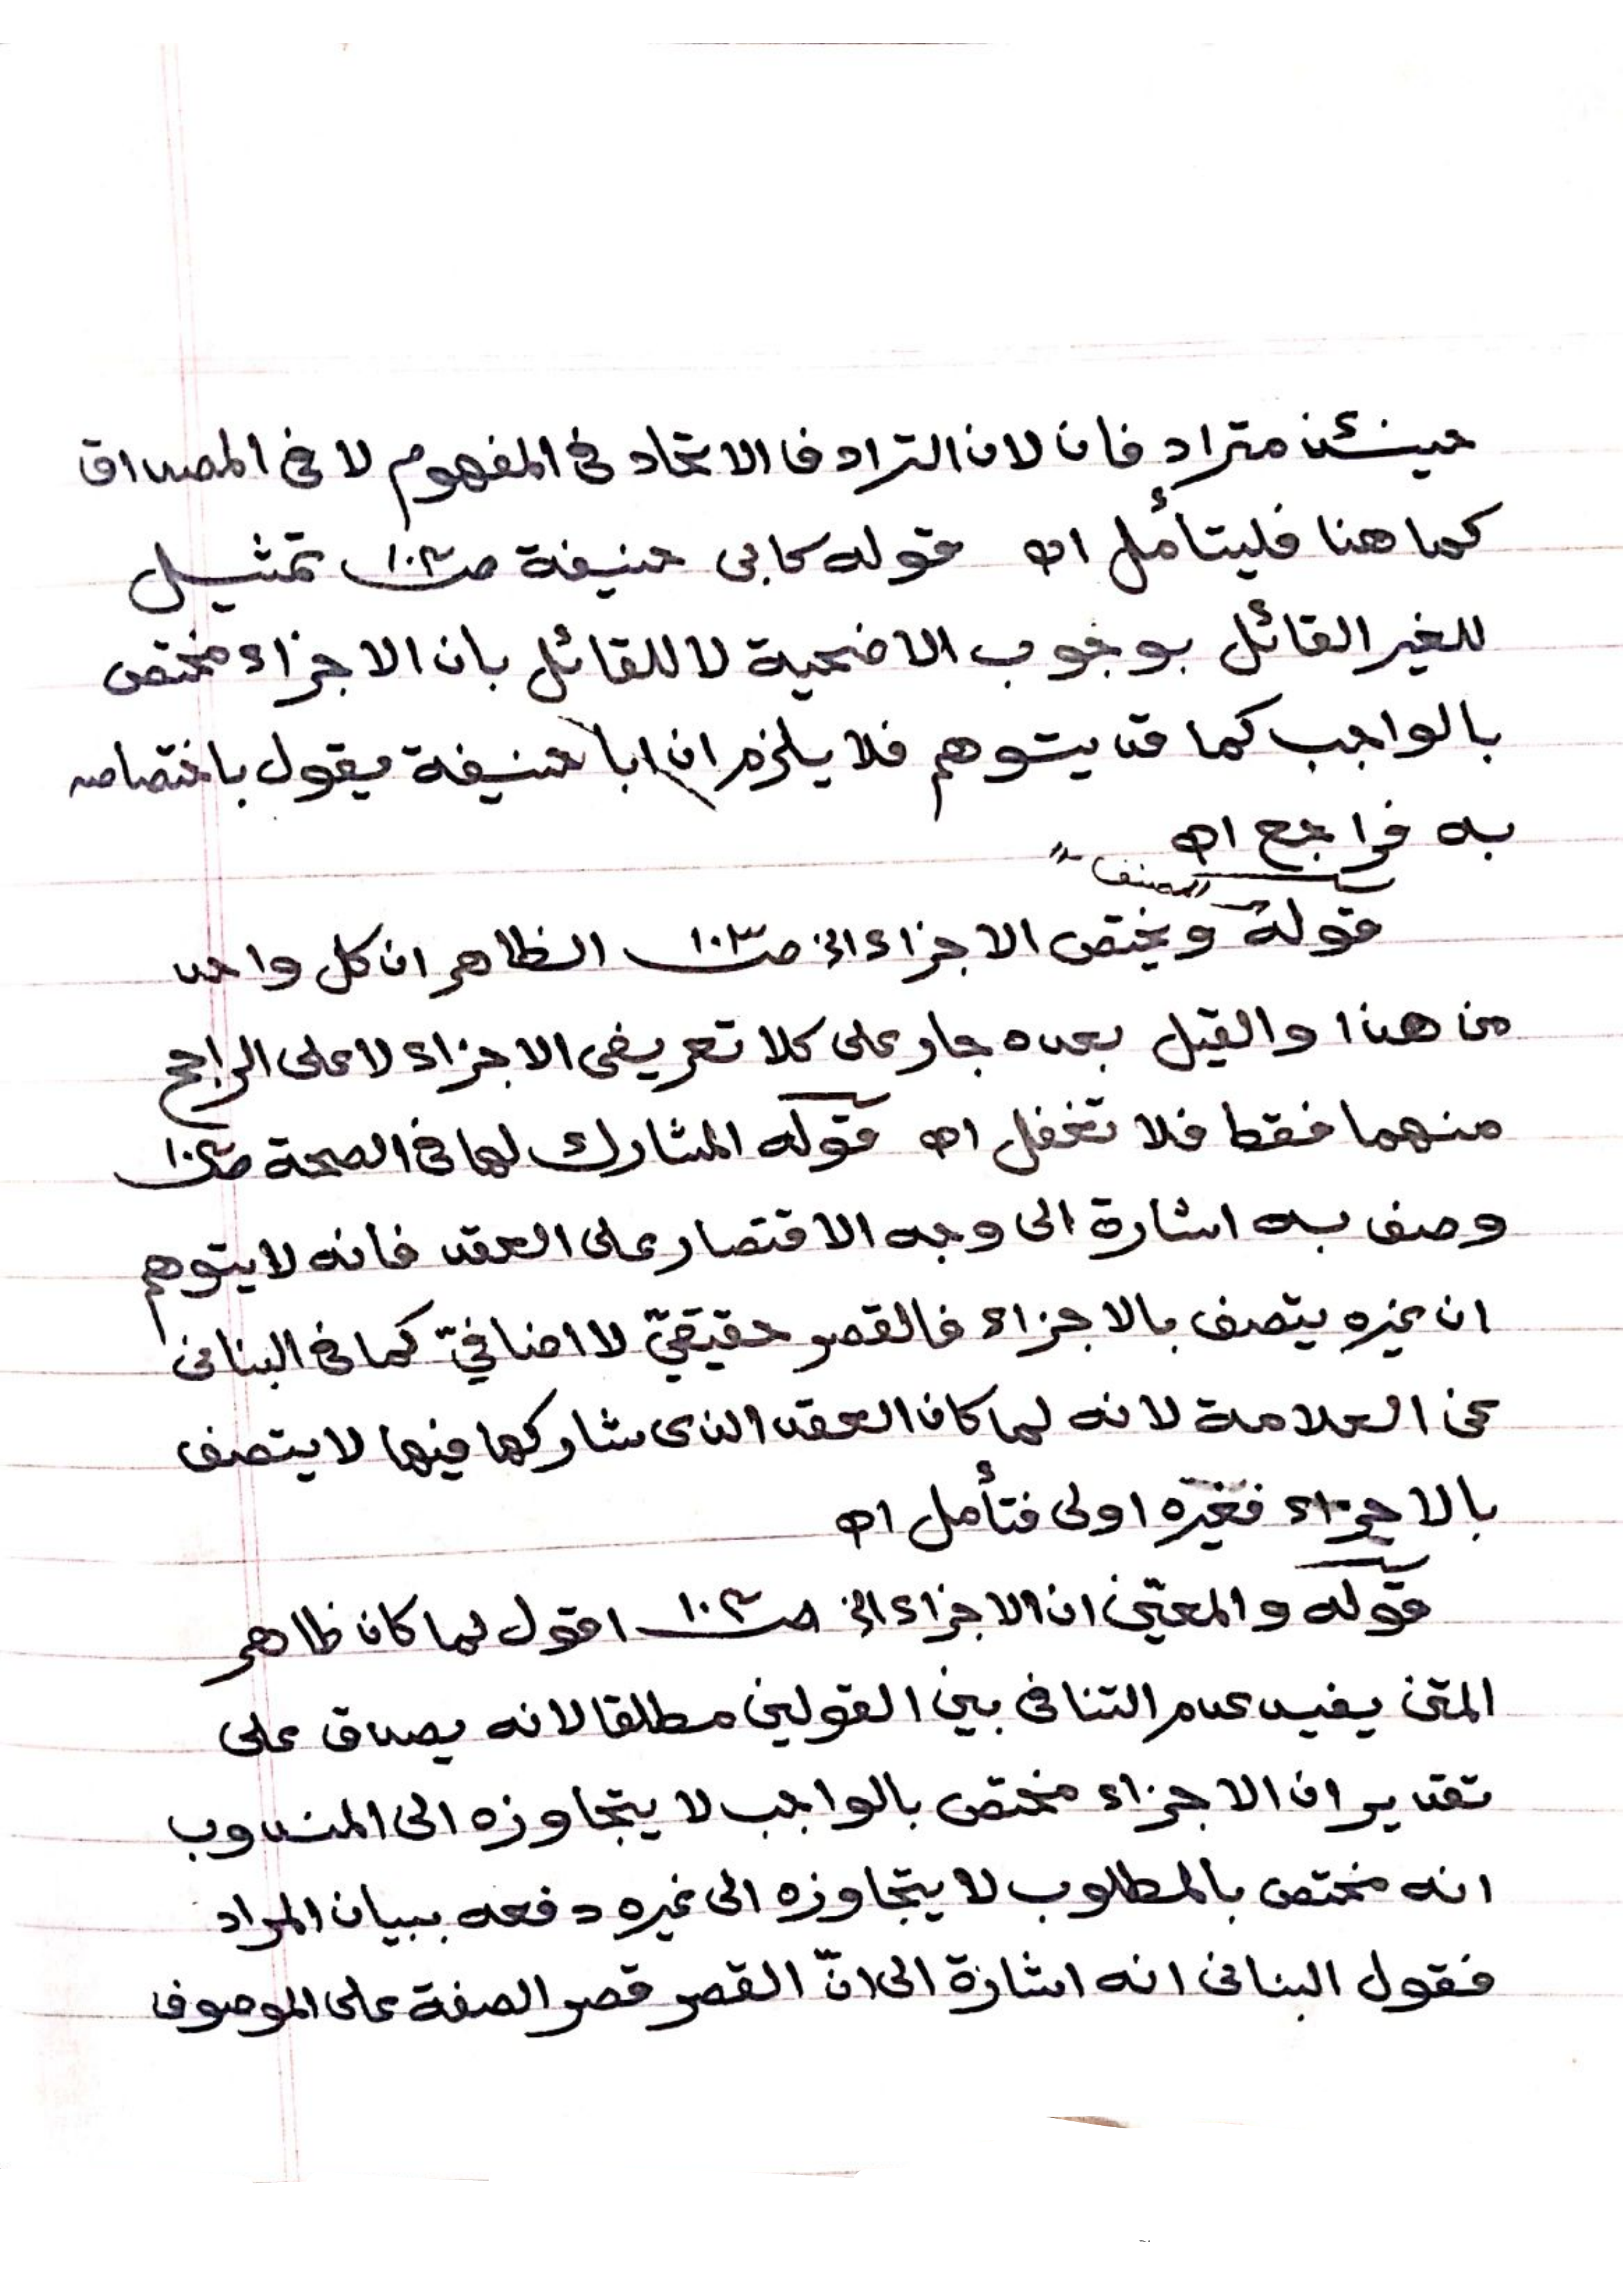 حينئذ مترادفان لان الترادف الاتحاد فى المفهوم لا فى المصداق
كما هنا فليتأمل اه قوله كابى حنيفة صـ١٠٣ تمثيل
للغير القائل بوجوب الاضحية لا للقائل بان الاجزاء مختص
بالواجب كما قد يتوهم فلا يلزم ان ابا حنيفة يقول باختصاصه
به فراجع اه
المصنف
قوله ويختص الاجزاء الخ صـ١٠٣ الظاهر ان كل واحد
من هذا والقيل بعده جار على كلا تعريفى الاجزاء لا على الراجح
منهما فقط فلا تغفل اه قوله المشارك لها فى الصحة صـ١٠٣
وصف به اشارة الى وجه الاقتصار على العقد فانه لا يتوهم
ان غيره يتصف بالاجزاء فالقصر حقيقيّ لا اضافيّ كما فى البنانى
عن العلامة لانه لما كان العقد الذى شاركها فيها لا يتصف
بالاجزاء فغيره اولى فتأمل اه
قوله والمعنى ان الاجزاء الخ صـ١٠٣ اقول لما كان ظاهر
المتن يفيد عدم التنافى بين القولين مطلقا لانه يصدق على
تقدير ان الاجزاء مختص بالواجب لا يتجاوزه الى المندوب
انه مختص بالمطلوب لا يتجاوزه الى غيره دفعه ببيان المراد
فقول البنانى انه اشارة الى انّ القصر قصر الصفة على الموصوف